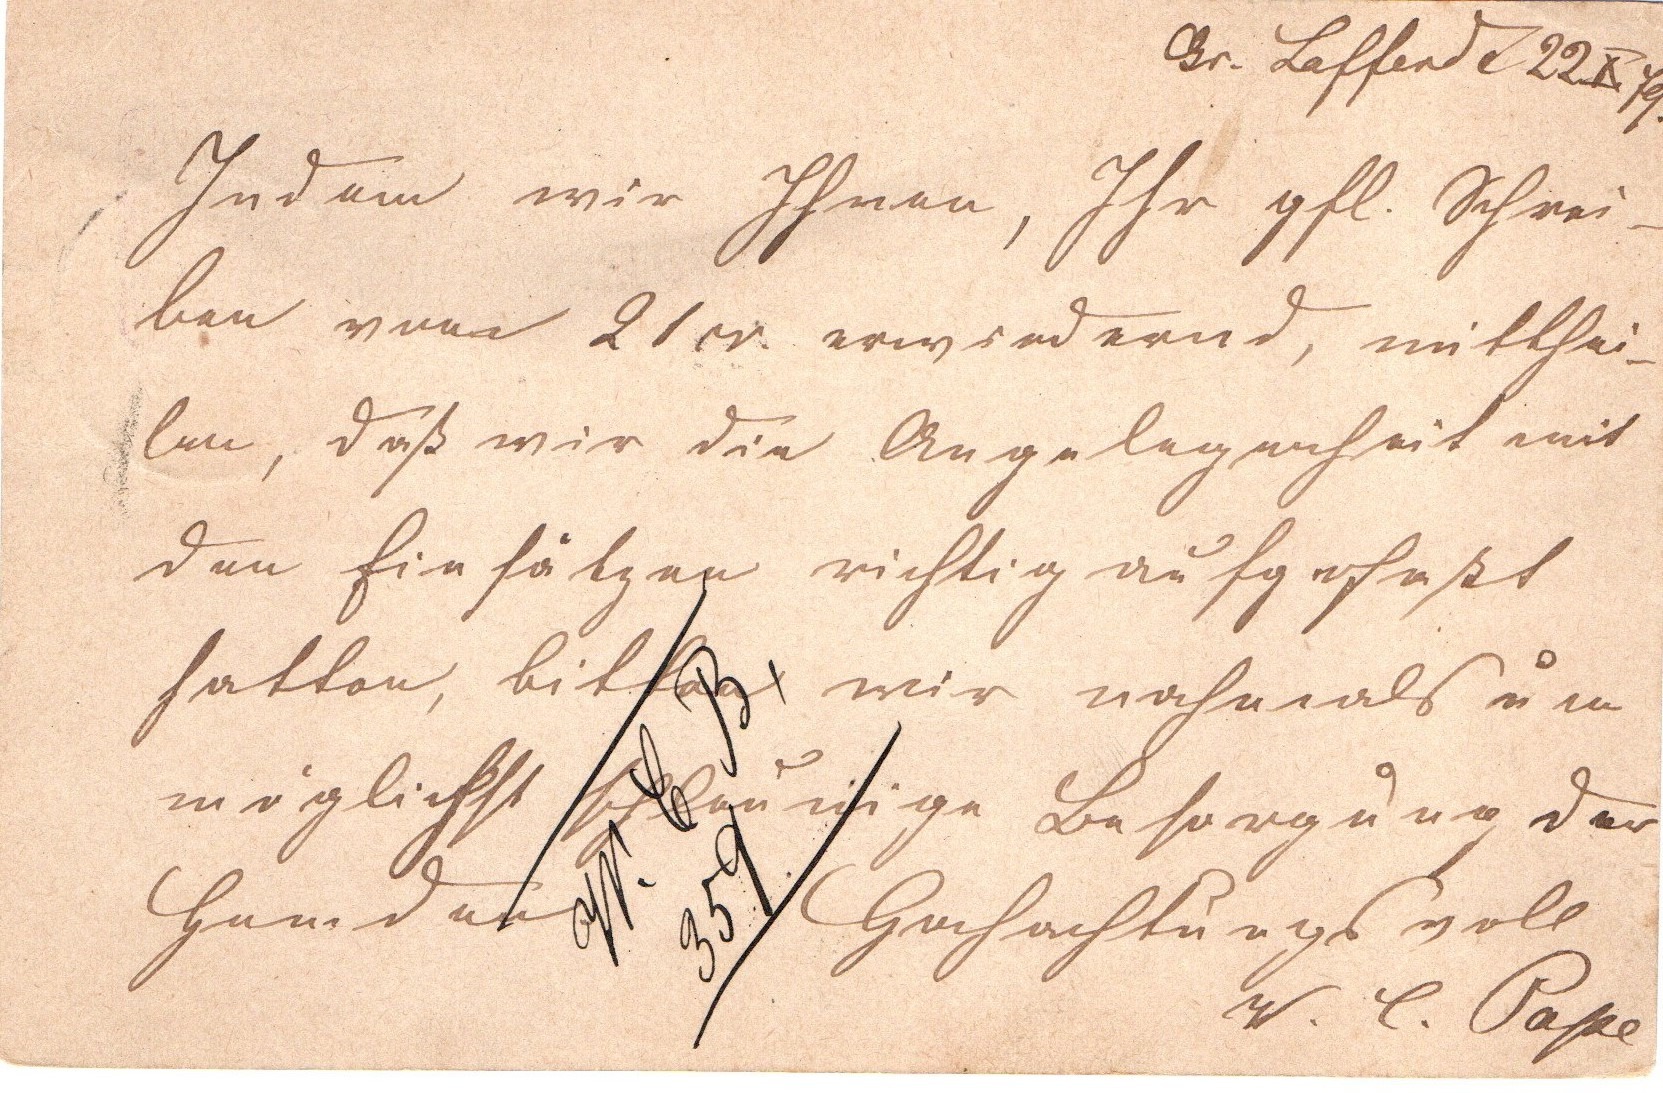 Gr. Lafferde 22 X 79.
Indem wir Ihnen, Ihr gfl. Schrei-
ben vom 21 cr. erwiedernd, mitthei-
len, daß wir die Angelegenheit mit
den Einsätzen richtig aufgefaßt
hatten, bitten wir nochmals um
möglichst schleunige Besorgung der
Hemden
Hochachtungsvoll
W. C. Pape
C B
359